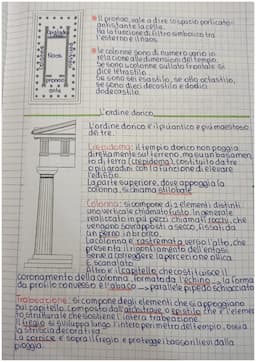 Il pronao, vale a dire lo spazio porticato
antistante la cella.
Ha la funzione di filtro simbolico tra
l'esterno e il naos.
le colonne sono di numero vario in
relazione alle dimensioni del tempio.
Se sono 4 colonne sul lato frontale si
dice tetrastilo.
Se sono sei esastilo, se otto octastilo,
se sono dieci decastilo e dodici
dodecastilo.
naos
pronao
L'ordine dorico
L'ordine dorico è il più antico e più maestoso
dei tre.
Crepidoma: il tempio dorico non poggia
direttamente sul terreno, ma su un basamen
to di pietra (crepidoma), costituito da tre
o più gradini con la funzione di elevare
l'edificio.
La parte superiore, dove appoggia la
colonna, si chiama stilobate
Colonna: si compone di 2 elementi distinti
uno verticale chiamato fusto. In generale
realizzato in più pezzi chiamati rocchi, che
vengono sovrapposti a secco, fissati da
un perno intorno.
La colonna è rastremata verso l'alto, che
presenta il rigonfiamento dell'entasi
serve a correggere la percezione ottica
È scanalata
Altro è il capitello che costituisce il
coronamento della colonna, formata da l'echino → la forma
da profilo convesso e l'abaco → parallelepipedo schiacciato
Trabeazione: Si compone degli elementi che si appoggiano
sul capitello. Composta dall'architrave o epistilio che è l'elemen
to strutturale che sostiene l'intera trabeazione
Il fregio si sviluppa lungo l'intero perimetro del tempio, ossia
la striscia decorativa
La cornice è sopra il fregio e protegge i bassorilievi dalla
pioggia.